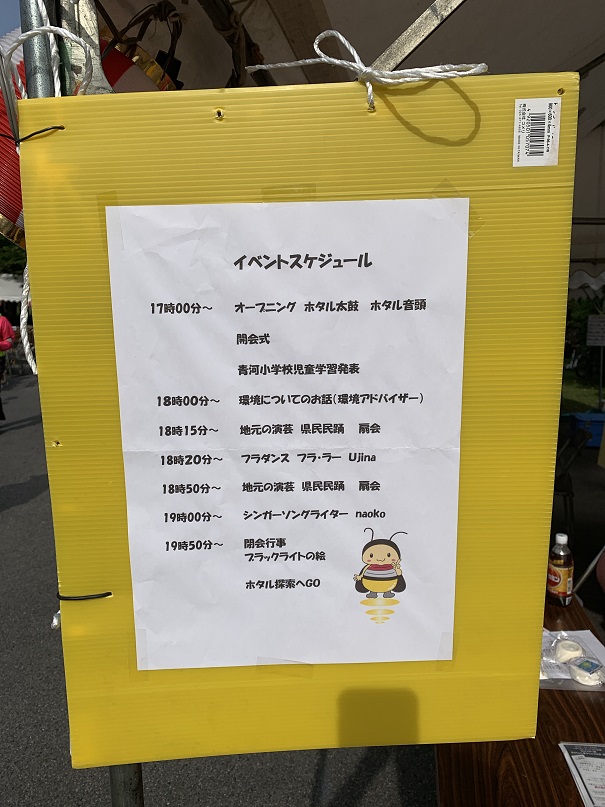 イベントスケジュール
17時00分～ オープニング ホタル太鼓 ホタル音頭
開会式
青河小学校児童学習発表
18時00分～ 環境についてのお話(環境アドバイザー)
18時15分～ 地元の演芸 県民民踊 扇会
18時20分～ フラダンス フラ・ラー Ujina
18時50分～ 地元の演芸 県民民踊 扇会
19時00分～ シンガーソングライター naoko
19時50分～ 閉会行事
ブラックライトの絵
ホタル探索へGO